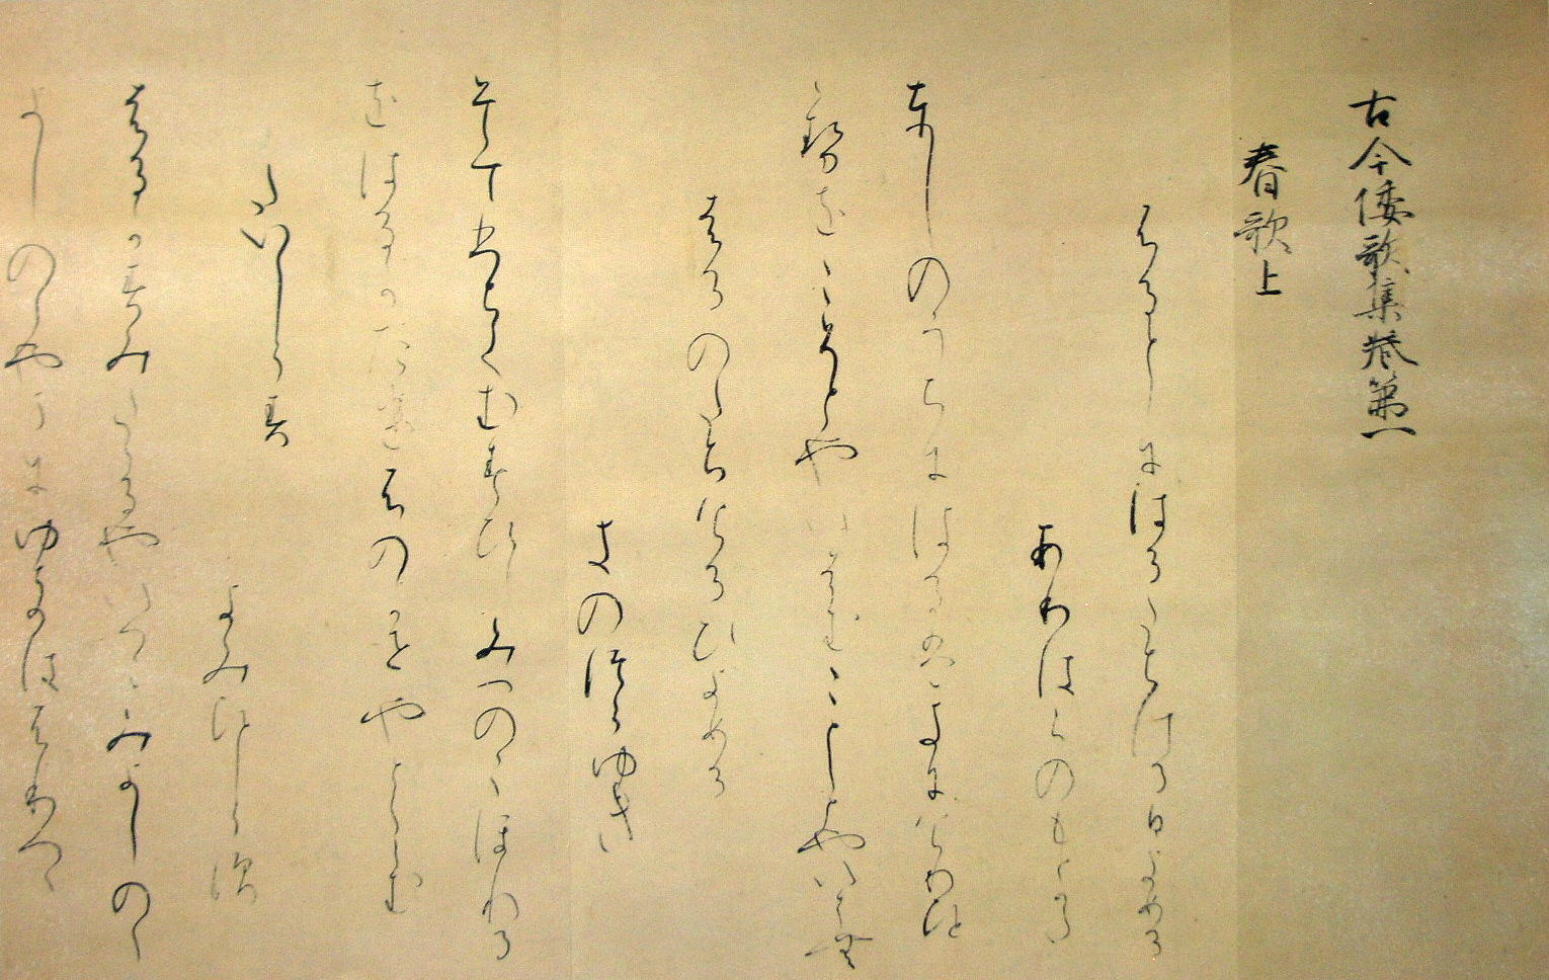 古今倭歌集巻第一
春歌上
ふるとしにはるたちける日よめる
ありはらのもとかた
としのうちにはるはきにけりひと
とせをこそとやいはむことしとやいはむ
はるのたちけるひよめる
きのつらゆき
そてひちてむすひしみつのこほれる
をはるたつけふのかせやとくらむ
たいしらす
よみひとしらす
はるかすみたてるやいつこみよしのゝ
よしのゝやまにゆきはふりつゝ